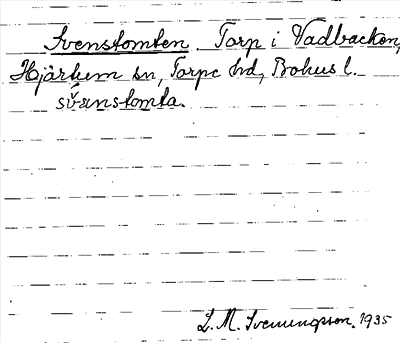 Svenstomten. Torp i Vadbacken,
Hjärtum sn, Torpe hd, Bohus l.
svänstomta.
L. M. Svenungsson. 1935